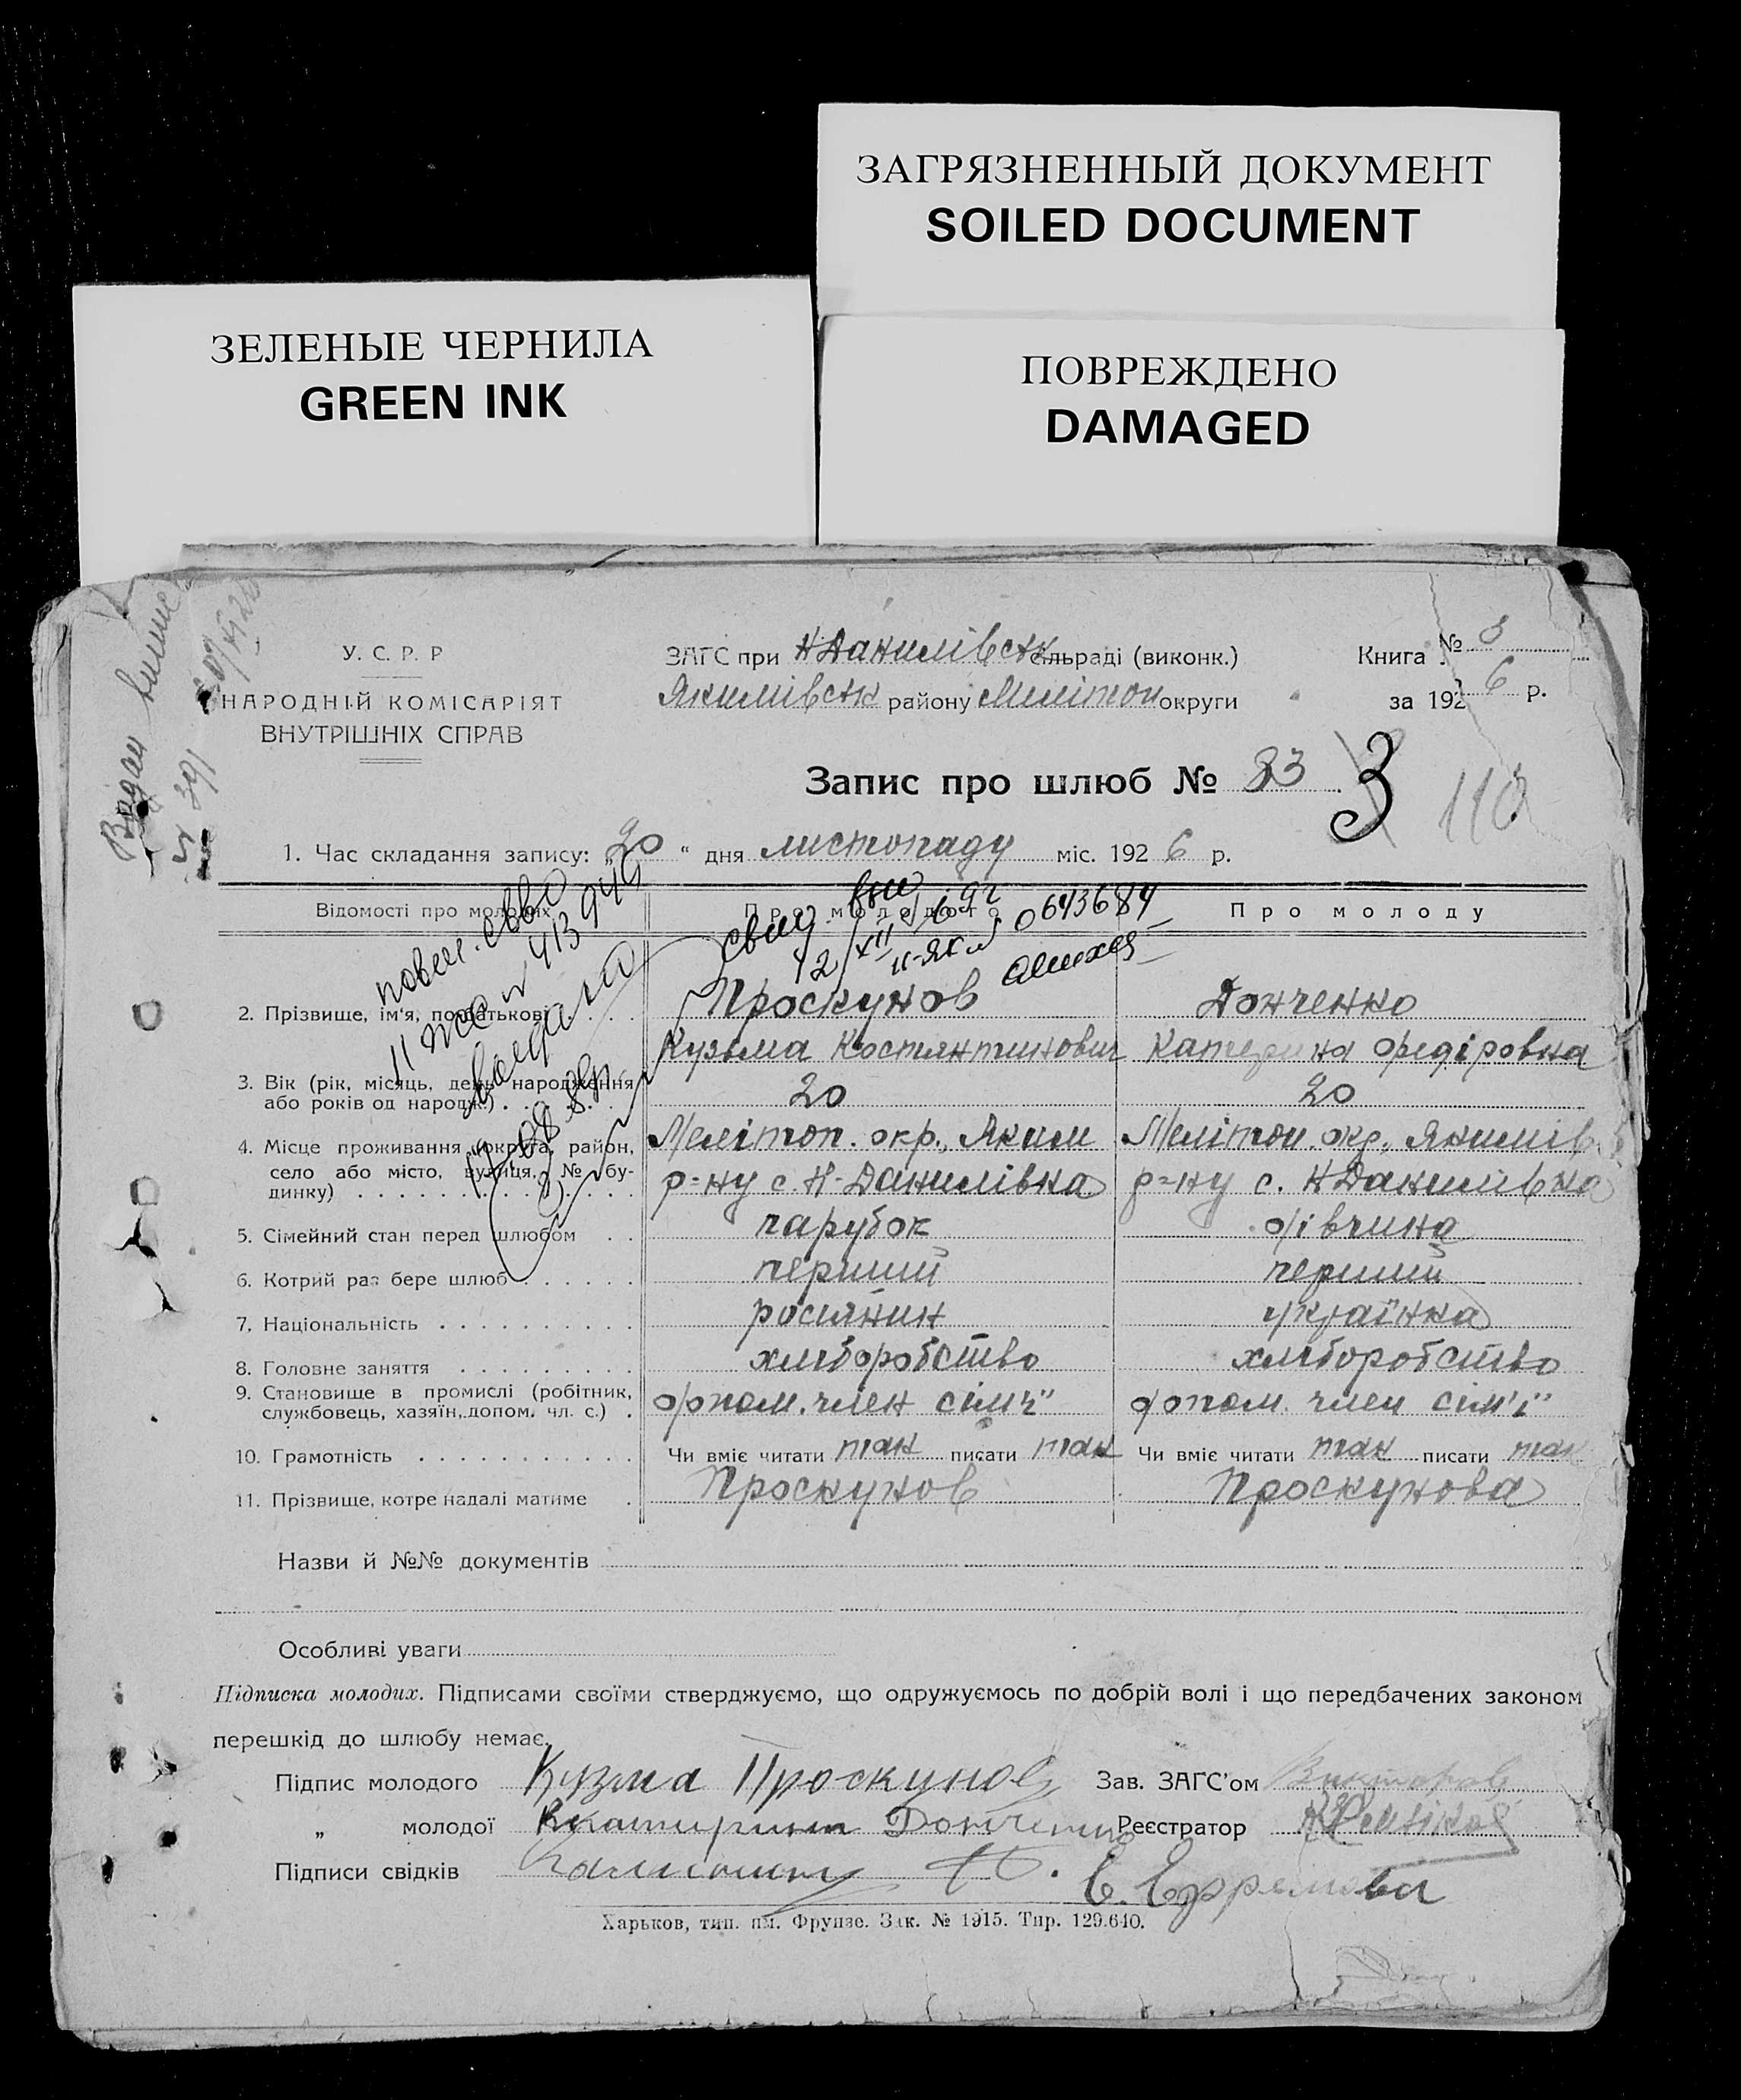 ЗАГРЯЗНЕННЫЙ ДОКУМЕНТ
SOILED DOCUMENT
ЗЕЛЕНЫЕ ЧЕРНИЛА
GREEN INK
ПОВРЕЖДЕНО
DAMAGED
У. С. Р. Р
НАРОДНІЙ КОМІСАРІЯТ
ВНУТРІШНІХ СПРАВ
ЗАГС при Н Данилівськ сільраді (виконк.)
Якимівськ району Мелітоп округи
Книга № 3
за 1926 р.
Запис про шлюб № 83 3 110
1. Час складання запису: „20“ дня листопаду міс. 1926 р.
Відомості про молодих Про молодого Про молоду
повт. св-во
0643684
2. Прізвище, ім'я, по батькові . . . Проскунов Донченко
Кузьма Костянтинович Катерина Федіровна
3. Вік (рік, місяць, день народження
або років од народж.) . . . 20 20
4. Місце проживання (округа, район, Мелітоп. окр., Яким Мелітоп. окр., Якимів
село або місто, вулиця, № бу-
динку) . . . р-ну с. Н-Данилівка р-ну с. Н Данилівка
5. Сімейний стан перед шлюбом . . парубок дівчина
6. Котрий раз бере шлюб . . . перший перший
7. Національність . . . росіянин українка
8. Головне заняття . . . хліборобство хліборобство
9. Становище в промислі (робітник,
службовець, хазяїн, допом. чл. с.) . допом. член сім'ї допом. член сім'ї
10. Грамотність . . . Чи вміє читати так писати так Чи вміє читати так писати так
11. Прізвище, котре надалі матиме . Проскунов Проскунова
Назви й №№ документів
Особливі уваги
Підписка молодих. Підписами своїми стверджуємо, що одружуємось по добрій волі і що передбачених законом
перешкід до шлюбу немає.
Підпис молодого Кузма Проскунов Зав. ЗАГС'ом
„ молодої Екатирина Донченко Реєстратор
Підписи свідків Е. Ефремова
Харьков, тип. им. Фрунзе. Зак. № 1915. Тир. 129.640.